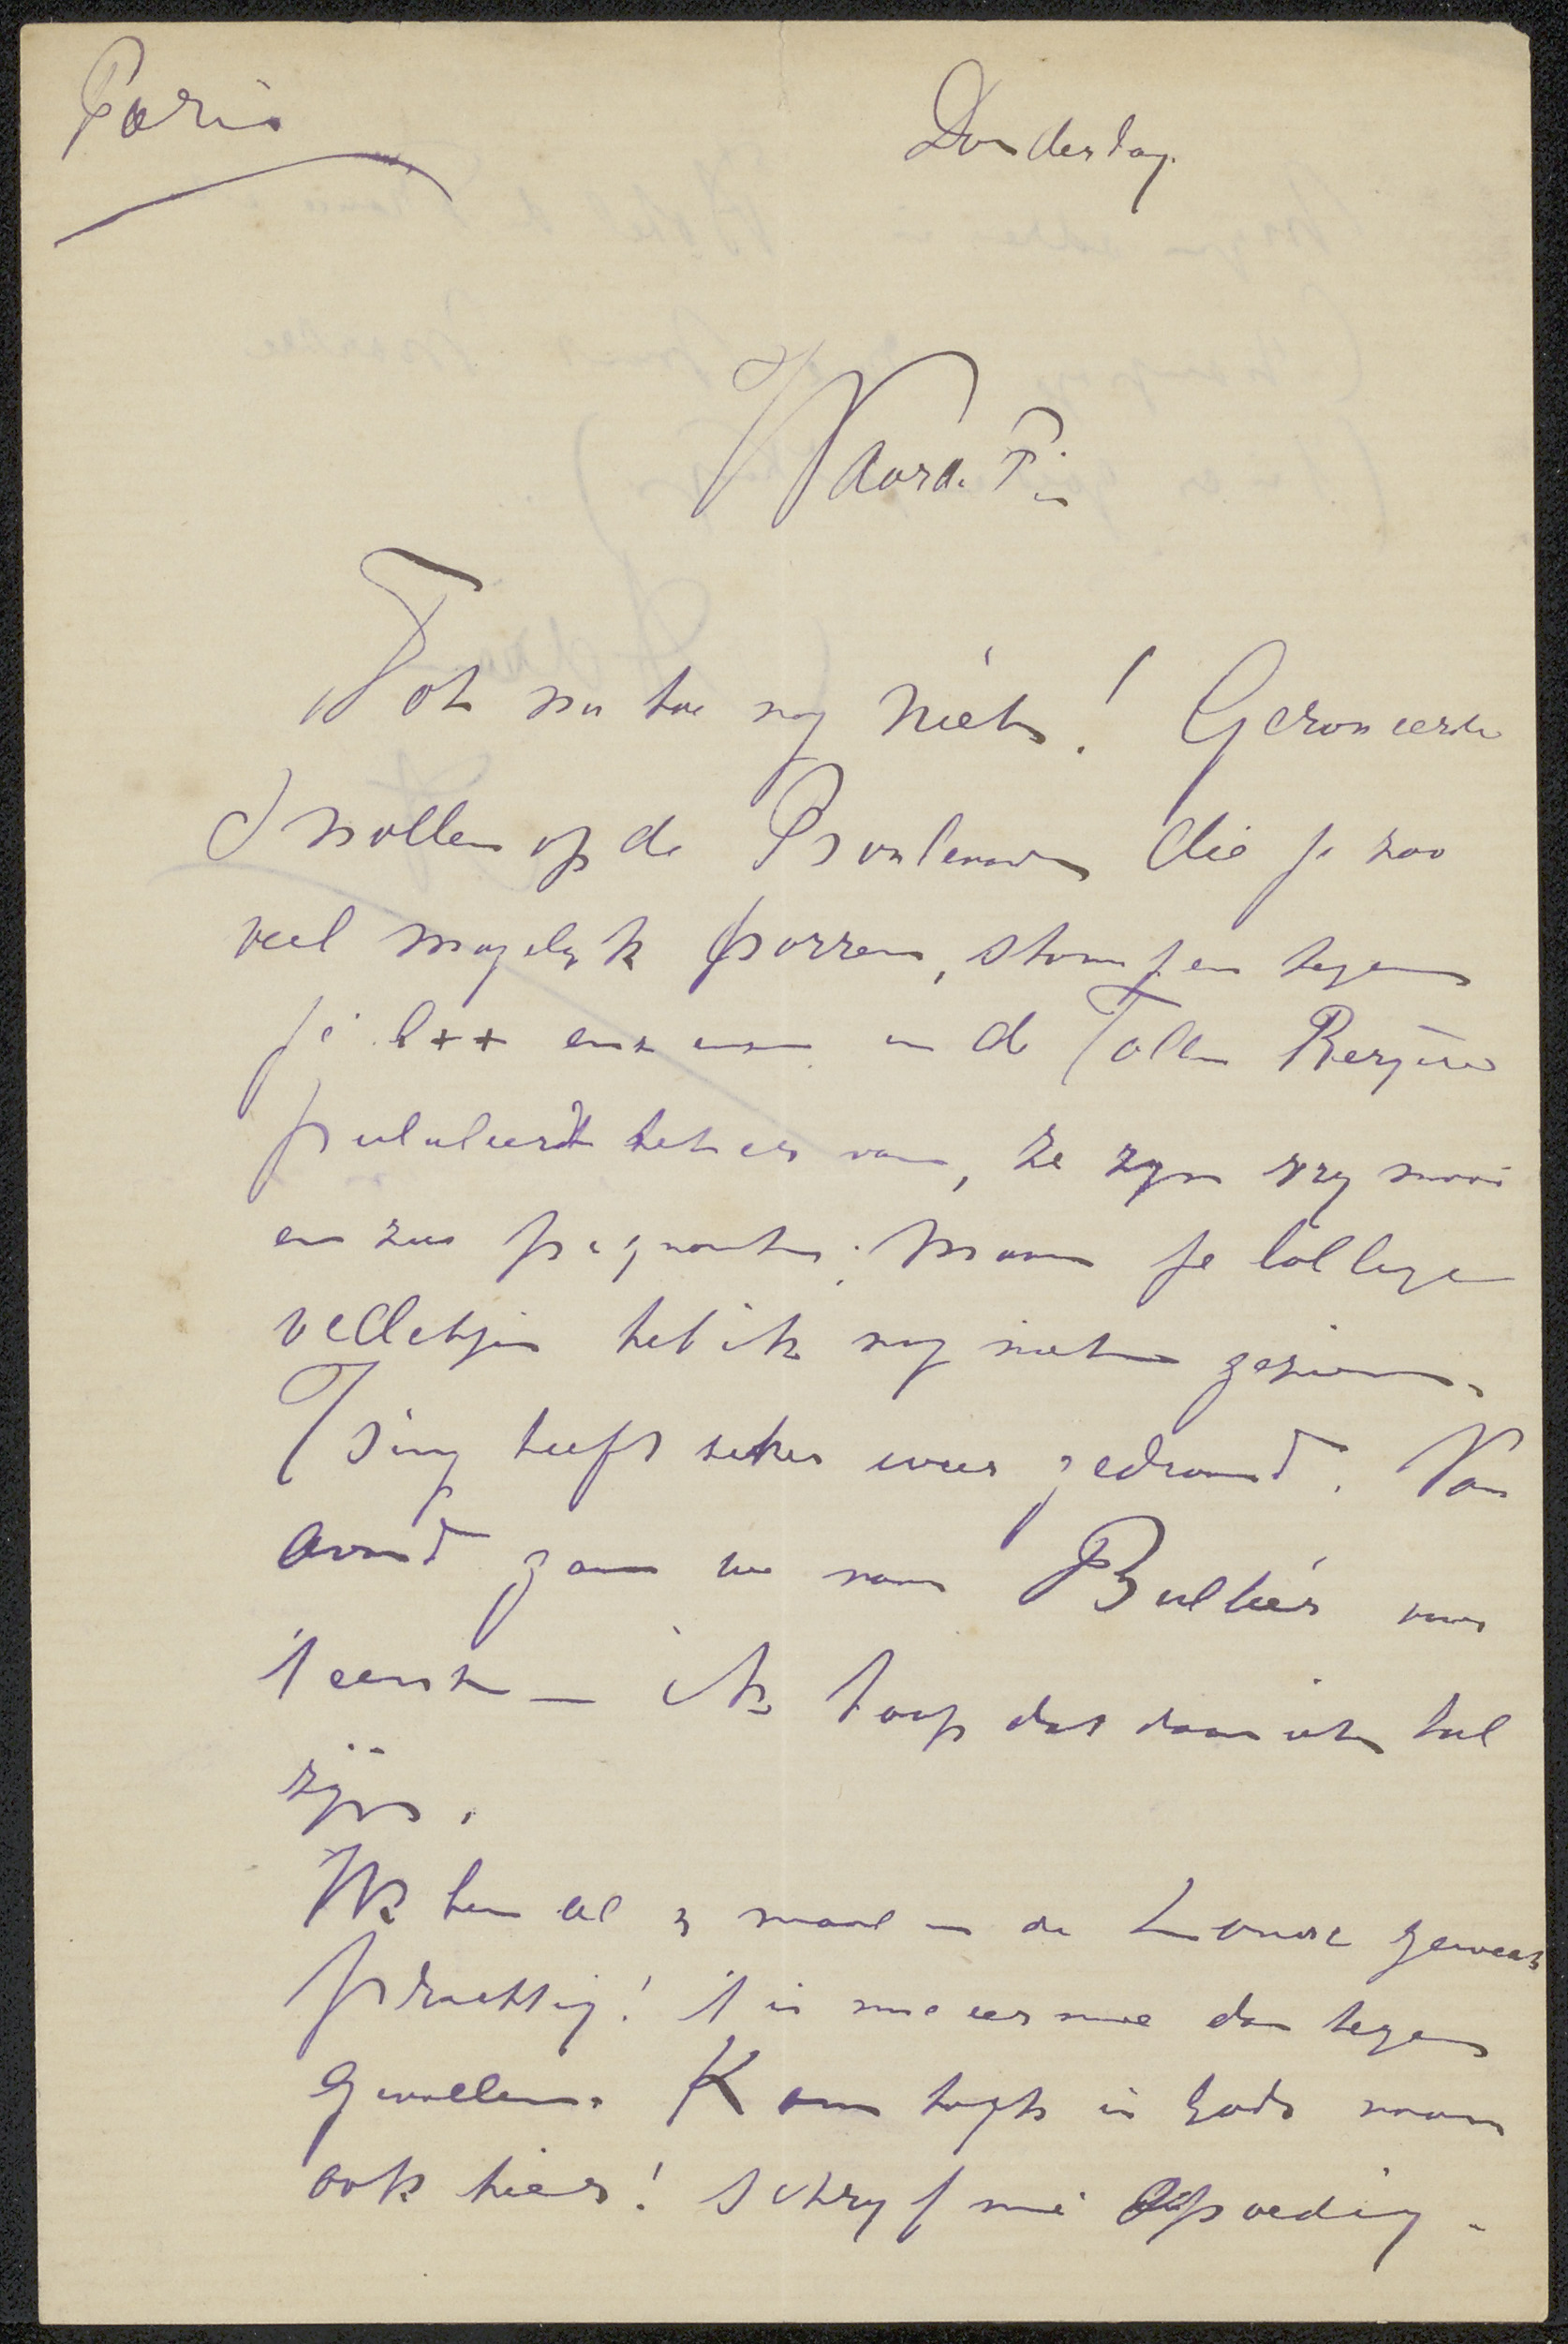 Paris
Donderdag.
Waarde Fi
Tot nu toe nog niets! Geronceerde
snollen op de Boulevards die je zoo
veel mogelyk porren, stompen tegen
je l++ enz enz in de Folies Bergères
pululeerdt het er van, ze zyn vry mooi
en zeer piquant. Maar je
velletjes heb ik nog niet gezien.
Ising heeft zeker weer gedramd. Van
avond gaan we naar Bullier voor
't eerst — ik hoop dat daar iets zal
zijn.
Ik ben al 3 maal in de Louvre geweest
prachtig! 't is me eer mee dan tegen
gevallen. Kom toch in Gods naam
ook hier! schryf me spoedig.